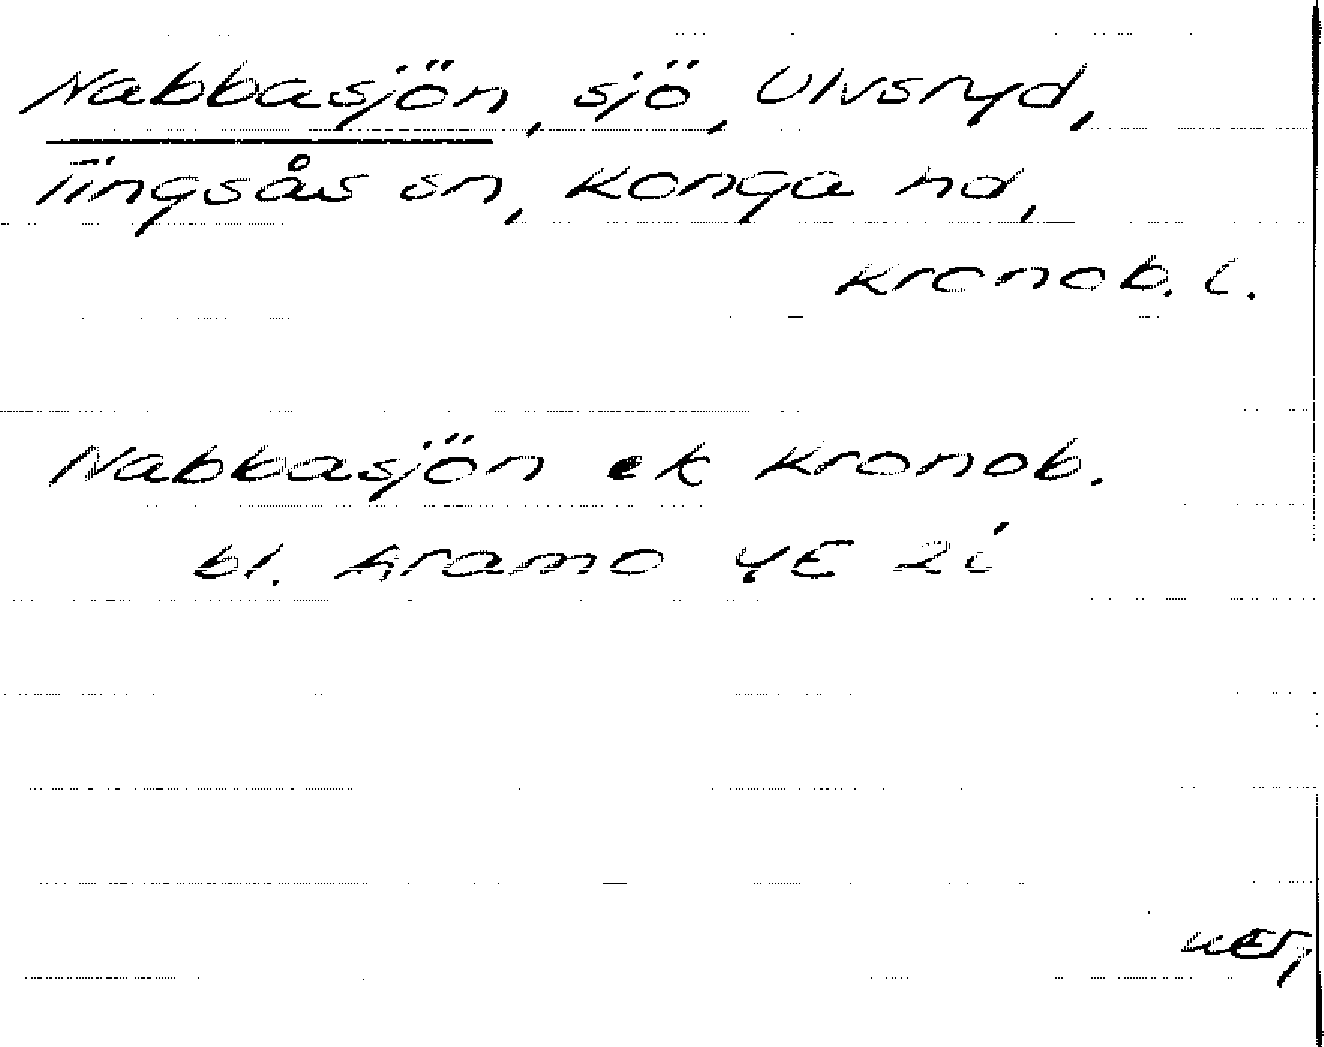 Nabbasjön, sjö, Ulvsryd,
Tingsås sn, Konga hd,
Kronob. l.
Nabbasjön ek Kronob.
bl. Åramo 4E 2i